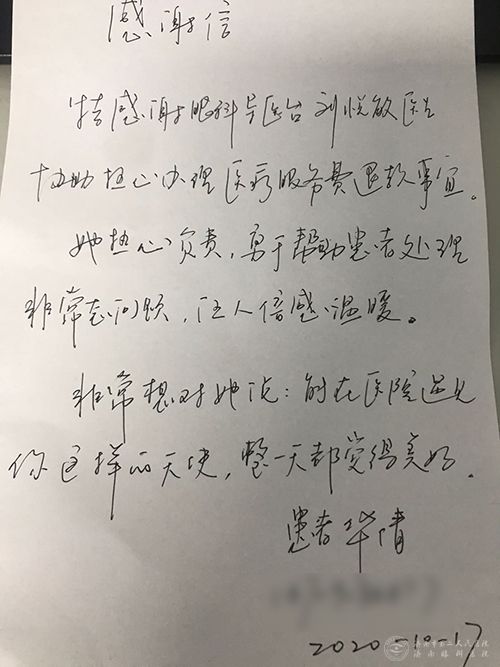 感谢信
特感谢眼科导医台刘悦敏医生
协助热心办理医疗服务费退款事宜。
她热心负责，勇于帮助患者处理
非常态问题，让人倍感温暖。
非常想对她说：能在医院遇见
你这样的天使，整一天都觉得美好。
患者华倩
2020-10-17
济南市第二人民医院
济南眼科医院